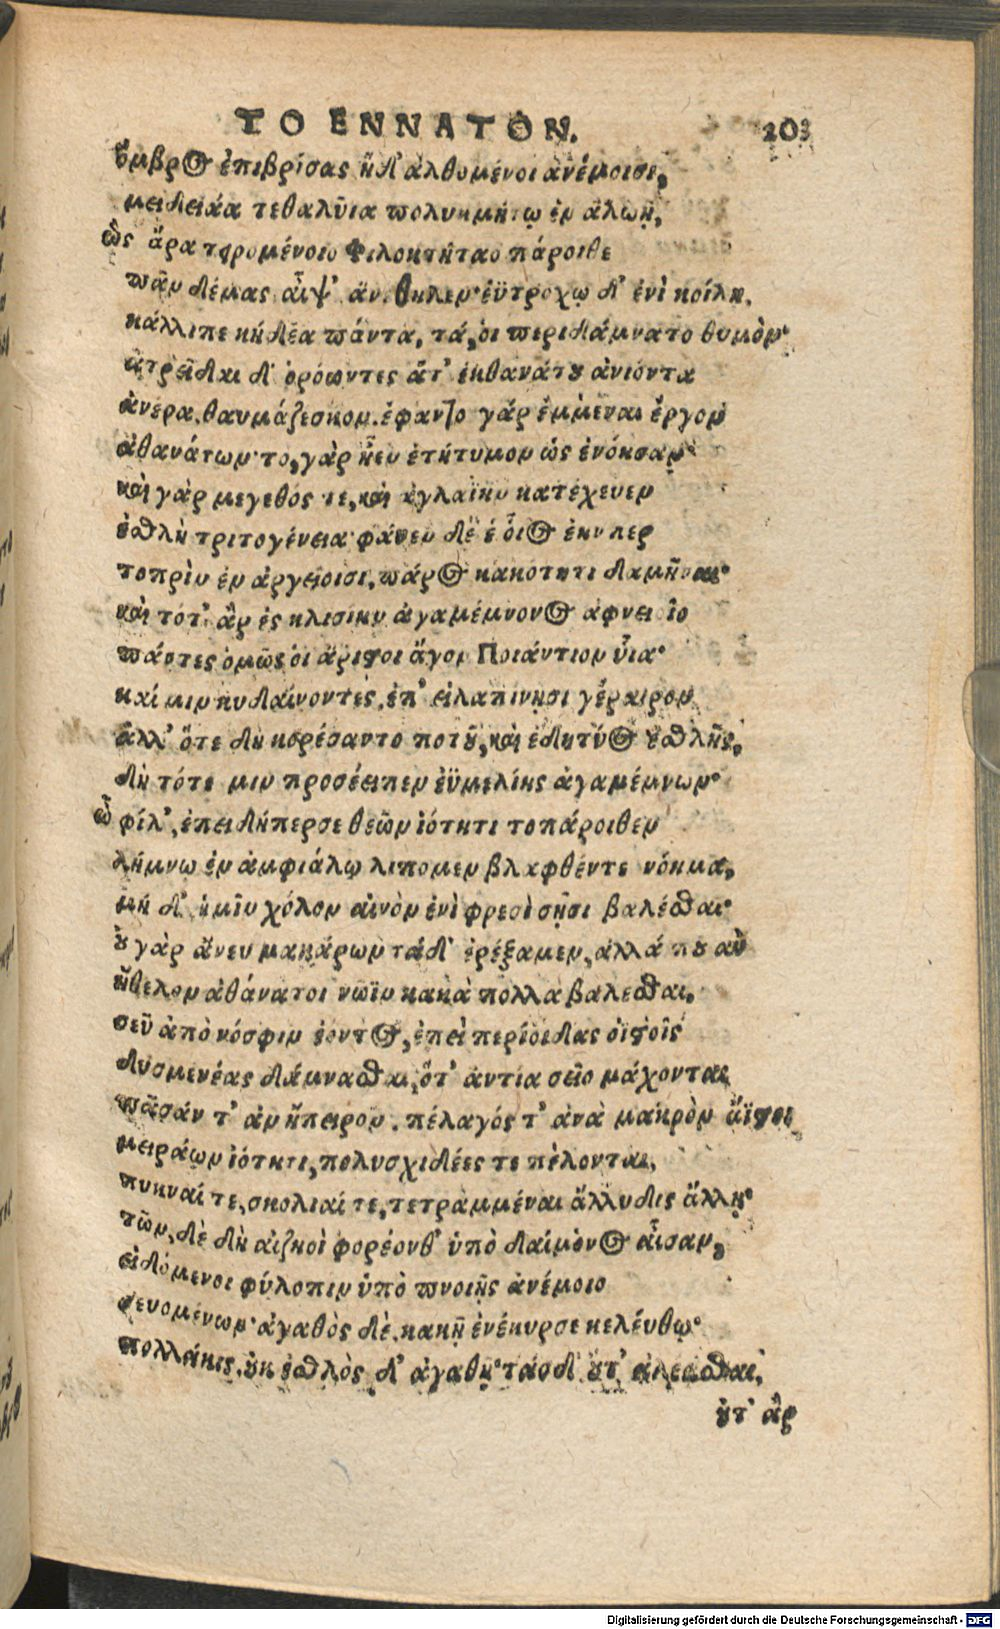 ΤΟ ΕΝΝΑΤΟΝ. 203
ὄμβρος ἐπιβρίσας ἠδ' ἀλθομένοι ἀνέμοισι,
μειδειάα τεθαλῦια πολυκμήτῳ ἐν ἀλωῇ,
ὣς ἄρα τρομένοιο Φιλοκτήταο πάροιθε
πᾶν δέμας αἶψ' ἀνέθηλεν· ἐϋτρόχῳ δ' ἐνὶ κοίλῃ.
κάλλιπε κήδεα πάντα, τά, οἱ περιδάμνατο θυμὸν·
ἀτρεῖδαι δ' ὁρόωντες ἅτ' ἐκθανάτου ἀνιόντα
ἀνέρα. θαυμάζεσκον. ἐφαντο γάρ ἔμμεναι ἔργον
ἀθανάτων· το, γὰρ ἦεν ἐτήτυμον ὡς ἐνόησαν·
καὶ γάρ μεγεθός τε, καὶ ἀγλαίην κατέχευεν
ἐσθλὴ τριτογένεια· φάνεν δέ ἑ οἷος ἔην περ
τοπρὶν ἐν ἀργείοισι. πάρος κακότητι δαμῆναι·
καὶ τότ' ἂρ ἐς κλισίην ἀγαμέμνονος ἀφνειοῖο
πάντες ὁμῶς οἱ ἄριστοι ἄγον Ποιάντιον ὗια·
καί μιν κυδαίνοντες, ἐπ' εἰλαπινῃσι γέραιρον
ἀλλ' ὅτε δὴ κορέσαντο ποτοῦ, καὶ ἐδητύος ἐσθλῆς,
δὴ τότε μιν προσέειπεν ἐϋμελίης ἀγαμέμνων·
ὦ φίλ', ἐπειδήπερσε θεῶν ἰότητι τοπάροιθεν
λήμνῳ ἐν ἀμφιάλῳ λιπομεν βλαφθέντε νόημα,
μή δ' ἡμῖν χόλον αἰνὸν ἐνὶ φρεσὶ σῇσι βαλέσθαι·
οὐ γὰρ ἄνευ μακάρων τάδ' ἐρέξαμεν, ἀλλά που αὐ
ἤθελον ἀθάνατοι νῶϊν κακὰ πολλα βαλεσθαι,
σεῦ ἀπὸ νόσφιν ἐοντος, ἐπεὶ περίοιδας ὀϊστοῖς
δυσμενέας δάμνασθαι, ὅτ' ἀντία σεῖο μάχονται
πᾶσάν τ' ἀν ἤπειρον. πέλαγός τ' ἀνὰ μακρὸν ἄϊστοι
μειράων ἰότητι, πολυσχιδέες τε πέλονται,
πυκναί τε, σκολιαί τε, τετραμμέναι ἄλλυδις ἄλλῃ·
τῶν, δὲ δὴ αἰζηοὶ φορέονθ' ὑπὸ δαίμονος αἶσαν,
εἰδόμενοι φύλοπιν ὑπὸ πνοιῇς ἀνέμοιο
σευομένων· ἀγαθὸς δὲ, κακῇ ἐνέκυρσε κελέυθῳ·
πολλάκις. οὐκ ἐσθλὸς δ' ἀγαθῃ· τάσδ' οὐτ' ἀλεασθαι,
οὐτ' ἂρ
Digitalisierung gefördert durch die Deutsche Forschungsgemeinschaft - DFG